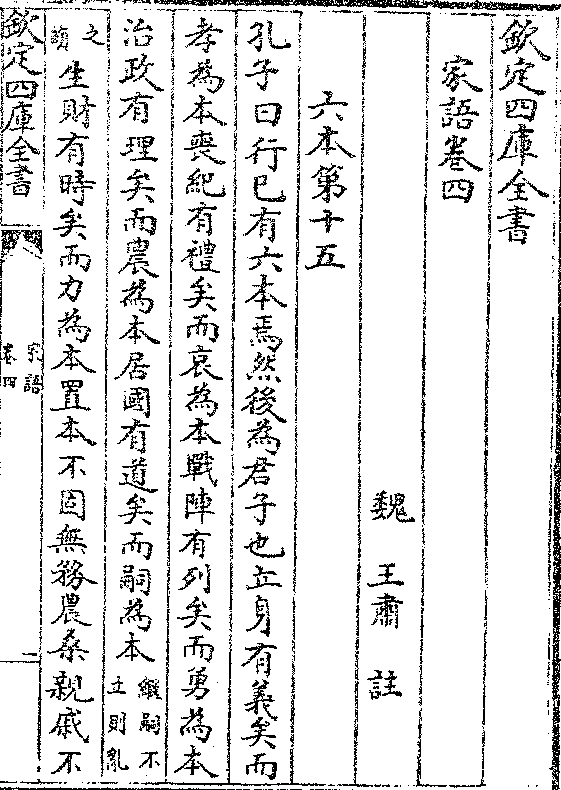 欽定四庫全書
家語卷四
魏 王肅 註
六本第十五
孔子曰行已有六本焉然後為君子也立身有義矣而
孝為本喪紀有禮矣而哀為本戰陣有列矣而勇為本
治政有理矣而農為本居國有道矣而嗣為本繼嗣不立則亂
之
生財有時矣而力為本置本不固無務農桑親戚不
欽定四庫全書
家語
卷四
一